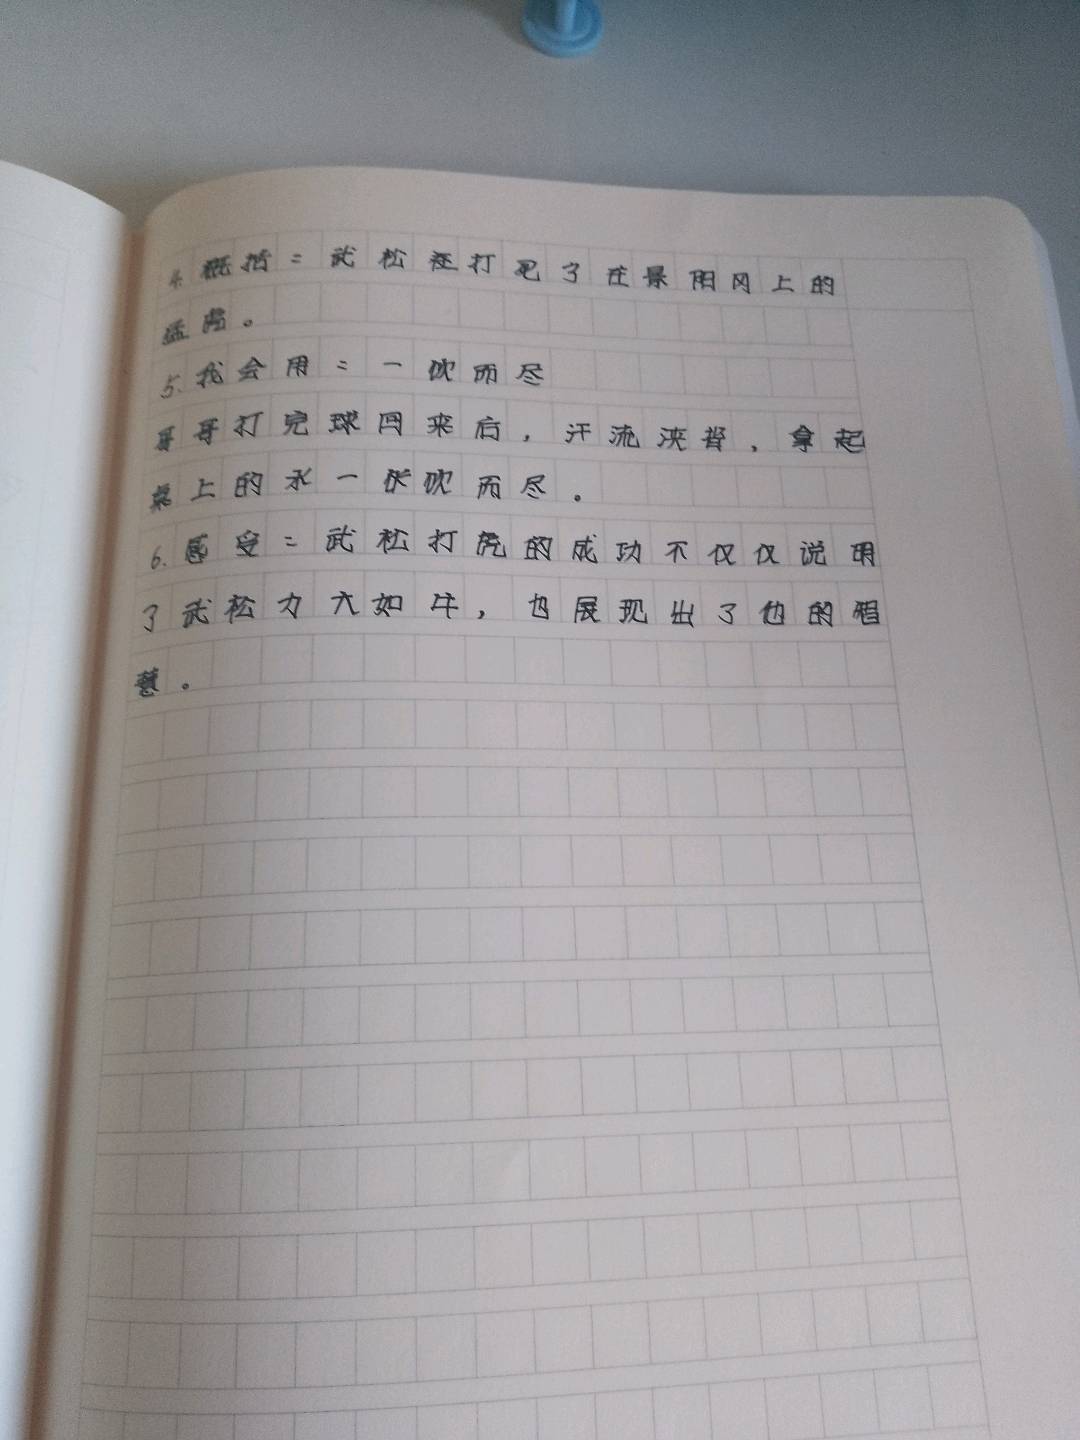 4.概括：武松狂打死了在景阳冈上的
猛虎。
5.我会用：一饮而尽
哥哥打完球回来后，汗流浃背，拿起
桌上的水一饮而尽。
6.感受：武松打虎的成功不仅仅说明
了武松力大如牛，也展现出了他的智
慧。